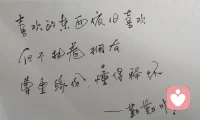 喜欢的东西依旧喜欢
但不执着拥有
尊重缘份，懂得释怀